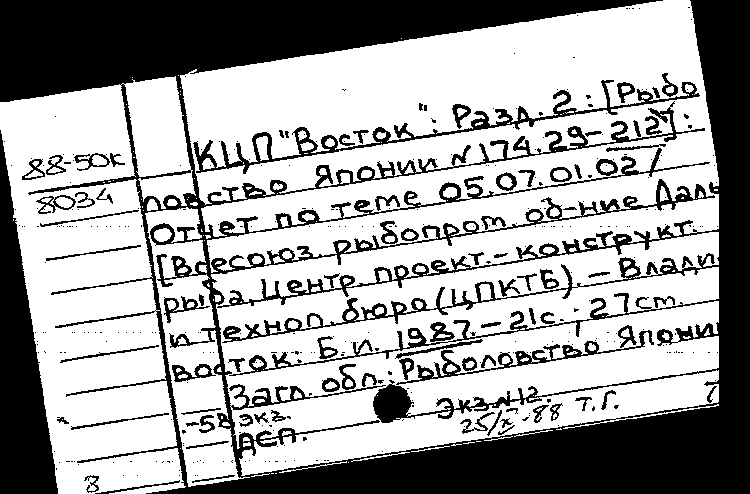 88-50к
8034
КЦП "Восток": Разд. 2: [Рыбо
ловство Японии N174.29-2127]:
Отчет по теме 05.07.01.02 /
[Всесоюз. рыбопром. об-ние Даль
рыба, Центр. проект.-конструкт.
и технол. бюро (ЦПКТБ). – Влади
восток: Б.и., 1987. – 21с.; 27см.
Загл. обл.: Рыболовство Японии
.-58 экз. Экз.N12.
ДСП. 25/X-88 Т.Г.